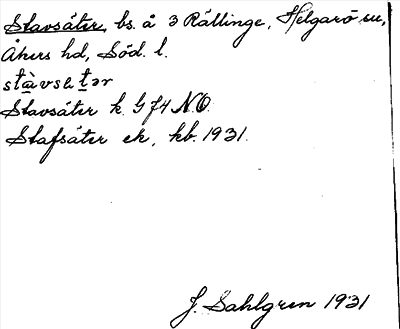 Stavsäter, bs. å 3 Rällinge, Helgarö sn,
Åkers hd, Söd. l.
stàvsɛtər
Stavsäter k. Gf4 N.O.
Stafsäter ek, kb. 1931.
J. Sahlgren 1931